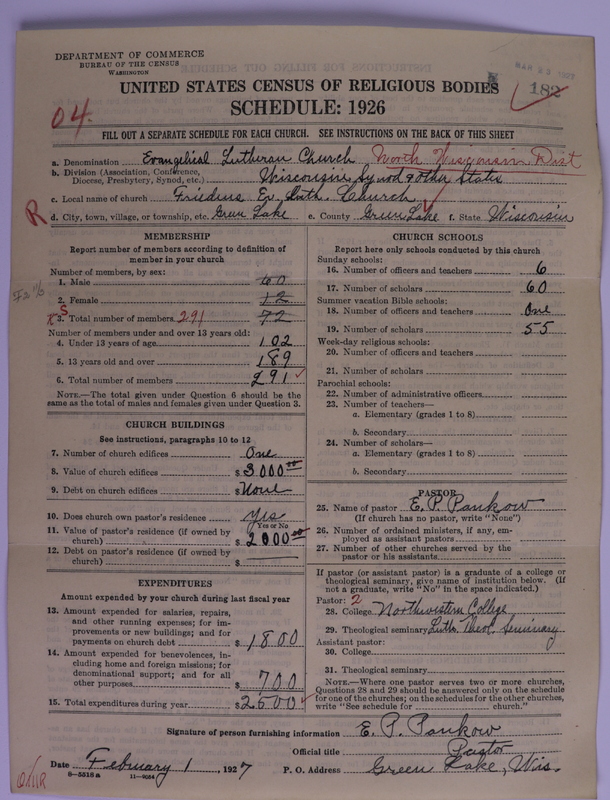 DEPARTMENT OF COMMERCE
BUREAU OF THE CENSUS
WASHINGTON
182
UNITED STATES CENSUS OF RELIGIOUS BODIES
SCHEDULE: 1926
04.
FILL OUT A SEPARATE SCHEDULE FOR EACH CHURCH. SEE INSTRUCTIONS ON THE BACK OF THIS SHEET
a. Denomination Evangelical Lutheran Church North Wisconsin Dist
b. Division (Association, Conference, Diocese, Presbytery, Synod, etc.) Wisconsin Synod & other States
c. Local name of church Friedens Ev. Luth. Church
R d. City, town, village, or township, etc. Green Lake e. County Green Lake f. State Wisconsin
MEMBERSHIP
Report number of members according to definition of
member in your church
Number of members, by sex:
1. Male 60
2. Female 12
3. Total number of members 291 72
Number of members under and over 13 years old:
4. Under 13 years of age 102
5. 13 years old and over 189
6. Total number of members 291
NOTE.—The total given under Question 6 should be the
same as the total of males and females given under Question 3.
CHURCH BUILDINGS
See instructions, paragraphs 10 to 12
7. Number of church edifices One
8. Value of church edifices $ 3000.00
9. Debt on church edifices $ None
10. Does church own pastor's residence Yes
Yes or No
11. Value of pastor's residence (if owned by
church) $ 2000.00
12. Debt on pastor's residence (if owned by
church) $
EXPENDITURES
Amount expended by your church during last fiscal year
13. Amount expended for salaries, repairs,
and other running expenses; for im-
provements or new buildings; and for
payments on church debt $ 1800
14. Amount expended for benevolences, in-
cluding home and foreign missions; for
denominational support; and for all
other purposes $ 700
15. Total expenditures during year $ 2500
CHURCH SCHOOLS
Report here only schools conducted by this church
Sunday schools:
16. Number of officers and teachers 6
17. Number of scholars 60
Summer vacation Bible schools:
18. Number of officers and teachers One
19. Number of scholars 55
Week-day religious schools:
20. Number of officers and teachers
21. Number of scholars
Parochial schools:
22. Number of administrative officers
23. Number of teachers—
a. Elementary (grades 1 to 8)
b. Secondary
24. Number of scholars—
a. Elementary (grades 1 to 8)
b. Secondary
PASTOR
25. Name of pastor E. P. Pankow
(If church has no pastor, write "None")
26. Number of ordained ministers, if any, em-
ployed as assistant pastors
27. Number of other churches served by the
pastor or his assistants
If pastor (or assistant pastor) is a graduate of a college or
theological seminary, give name of institution below. (If
not a graduate, write "No" in the space indicated.)
Pastor: 2
28. College Northwestern College
29. Theological seminary Luth. Theol. Seminary
Assistant pastor:
30. College
31. Theological seminary
NOTE.—Where one pastor serves two or more churches,
Questions 28 and 29 should be answered only on the schedule
for one of the churches; on the schedules for the other churches,
write "See schedule for church."
Signature of person furnishing information E. P. Pankow
Official title Pastor
Date February 1, 1927 P. O. Address Green Lake, Wis.
8—5518a 11—9024